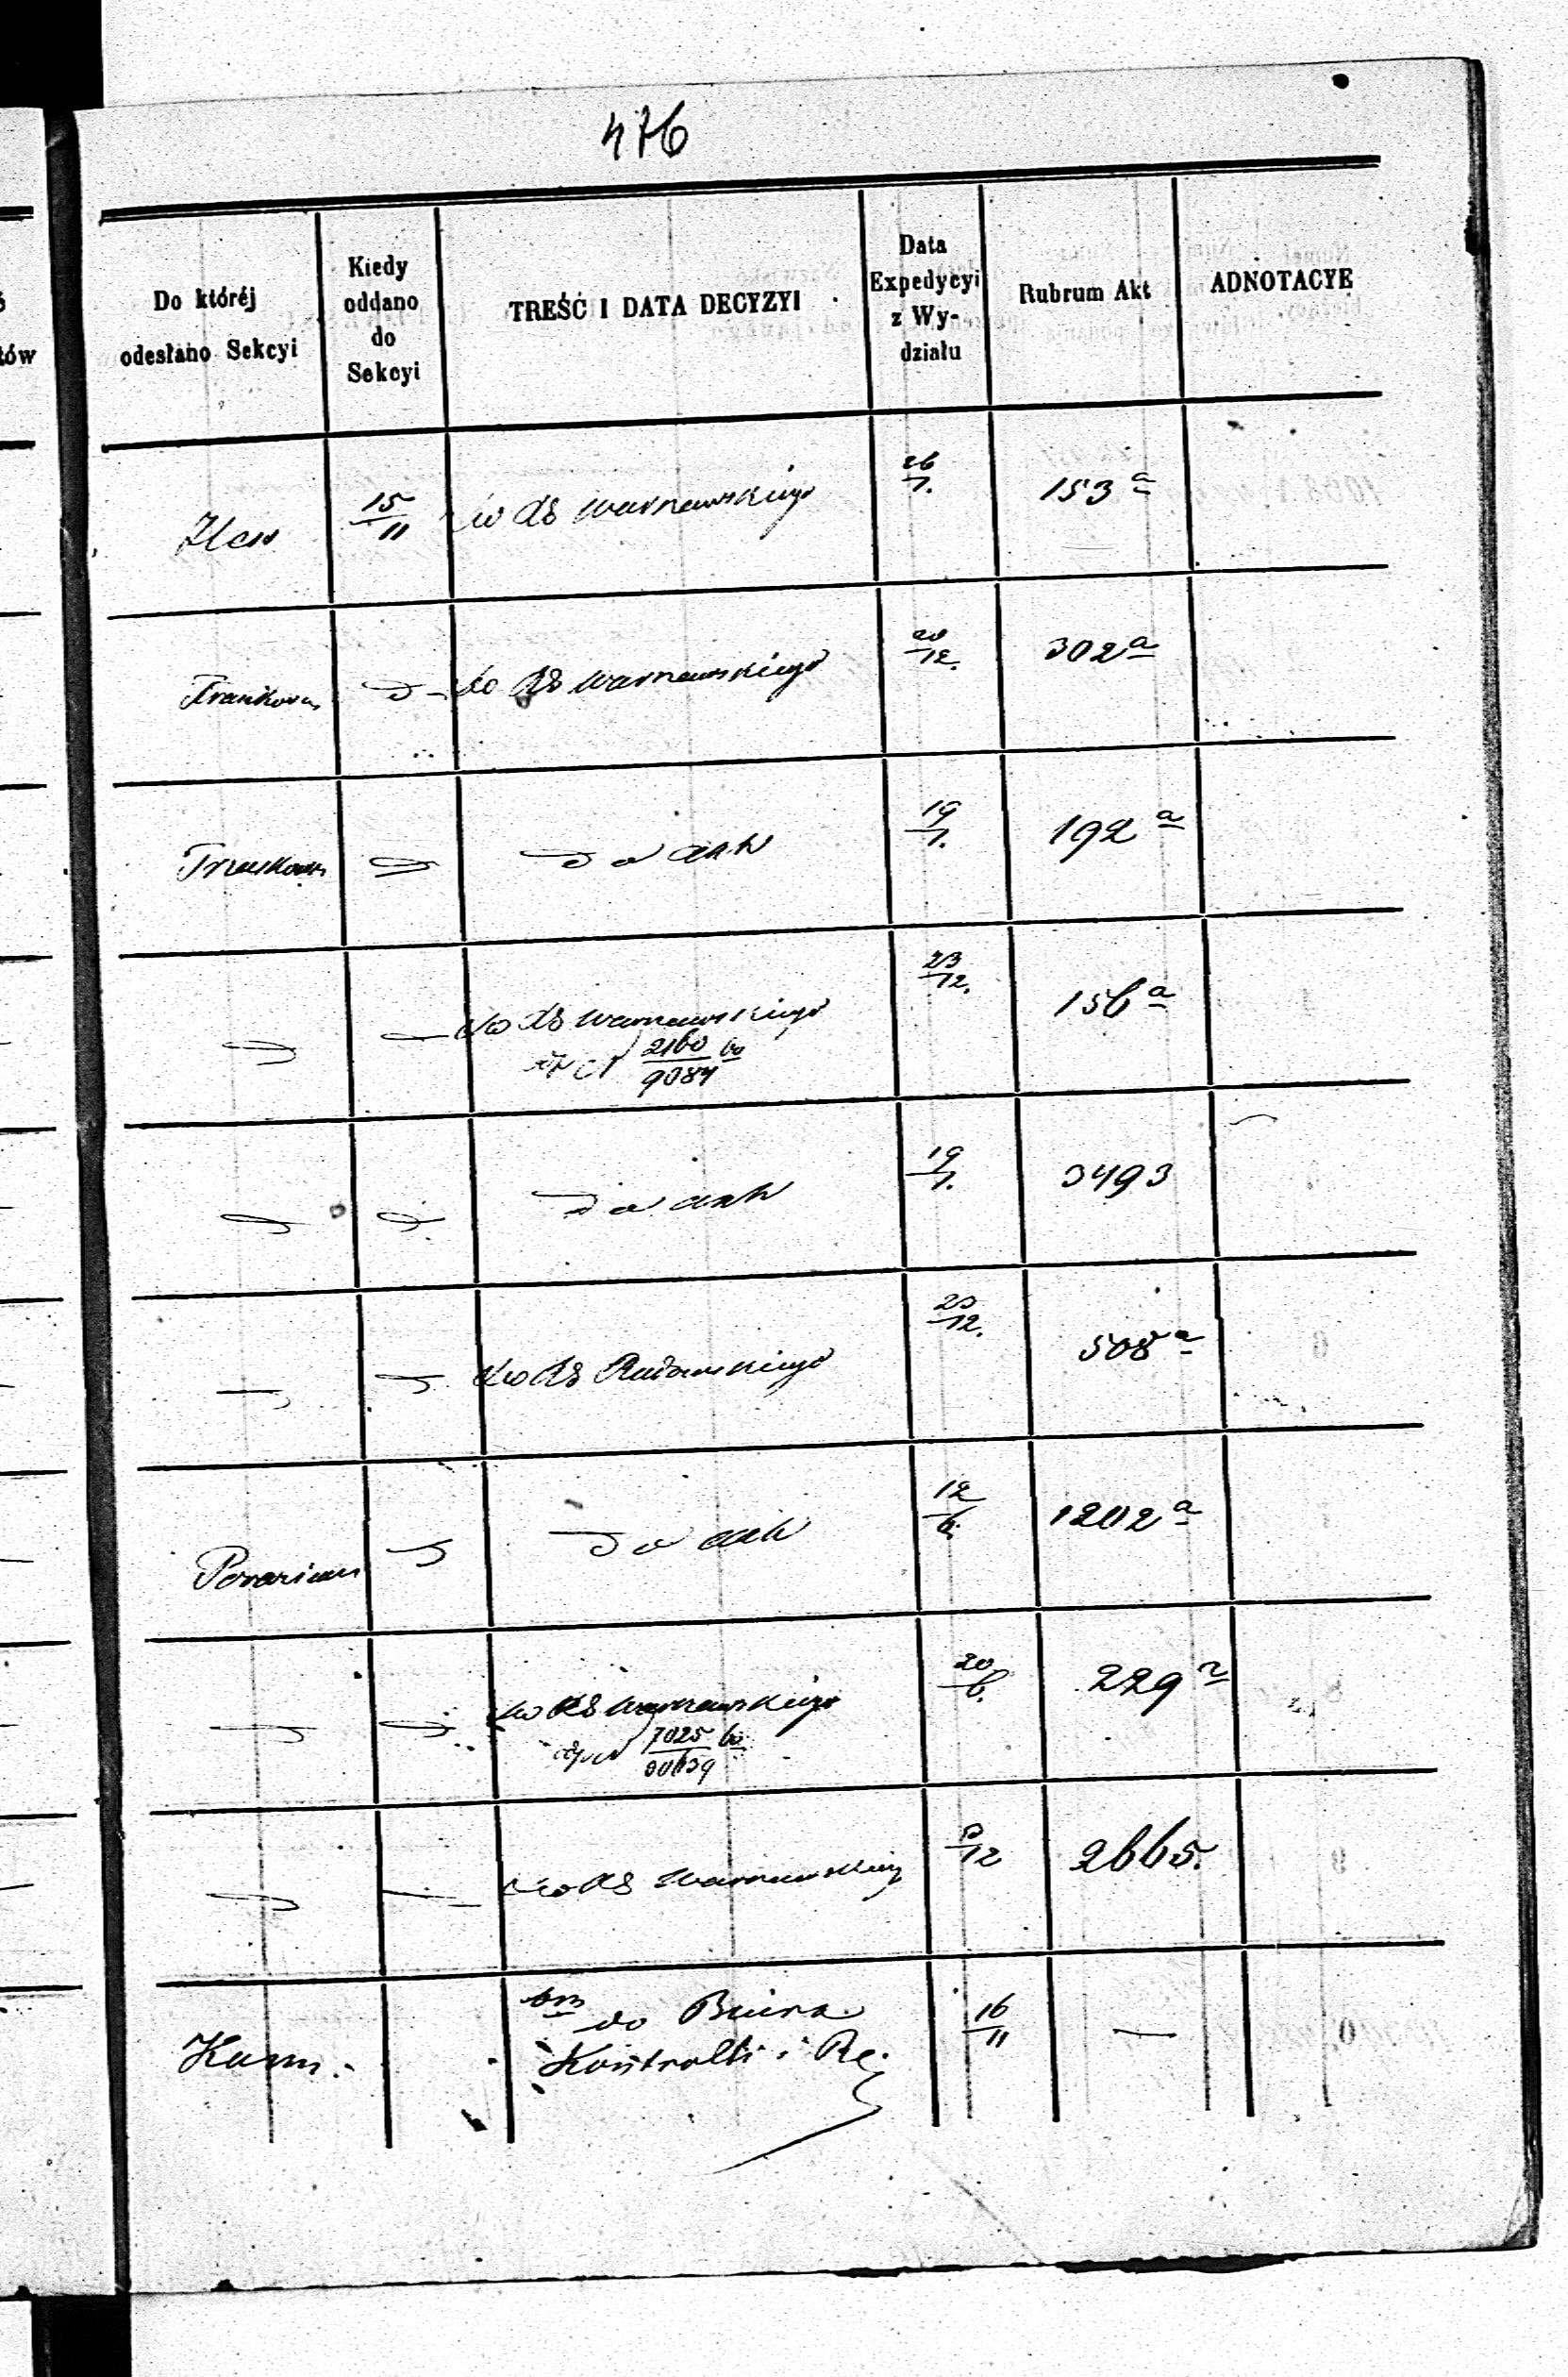 476
Do któréj
odesłano Sekcyi
Kiedy
oddano
do
Sekcyi
TREŚĆ I DATA DECYZYI
Data
Expedycyi
z Wy-
działu
Rubrum Akt
ADNOTACYE
15/11
do RG Warszawskiego
26/1.
153 a
do RG Warszawskiego
20/12.
302 a
do akt
19/1.
192 a
do RG Warszawskiego
2160/9084
23/12.
156 a
do akt
19/1.
3493
do RG Radomskiego
23/12.
508 a
do akt
12/6.
1202 a
do RG Warszawskiego
7025/30639
20/6.
229
do RG Warszawskiego
/12
2665.
Kom.
do Biura
Kontrolli i Re.
16/11
—